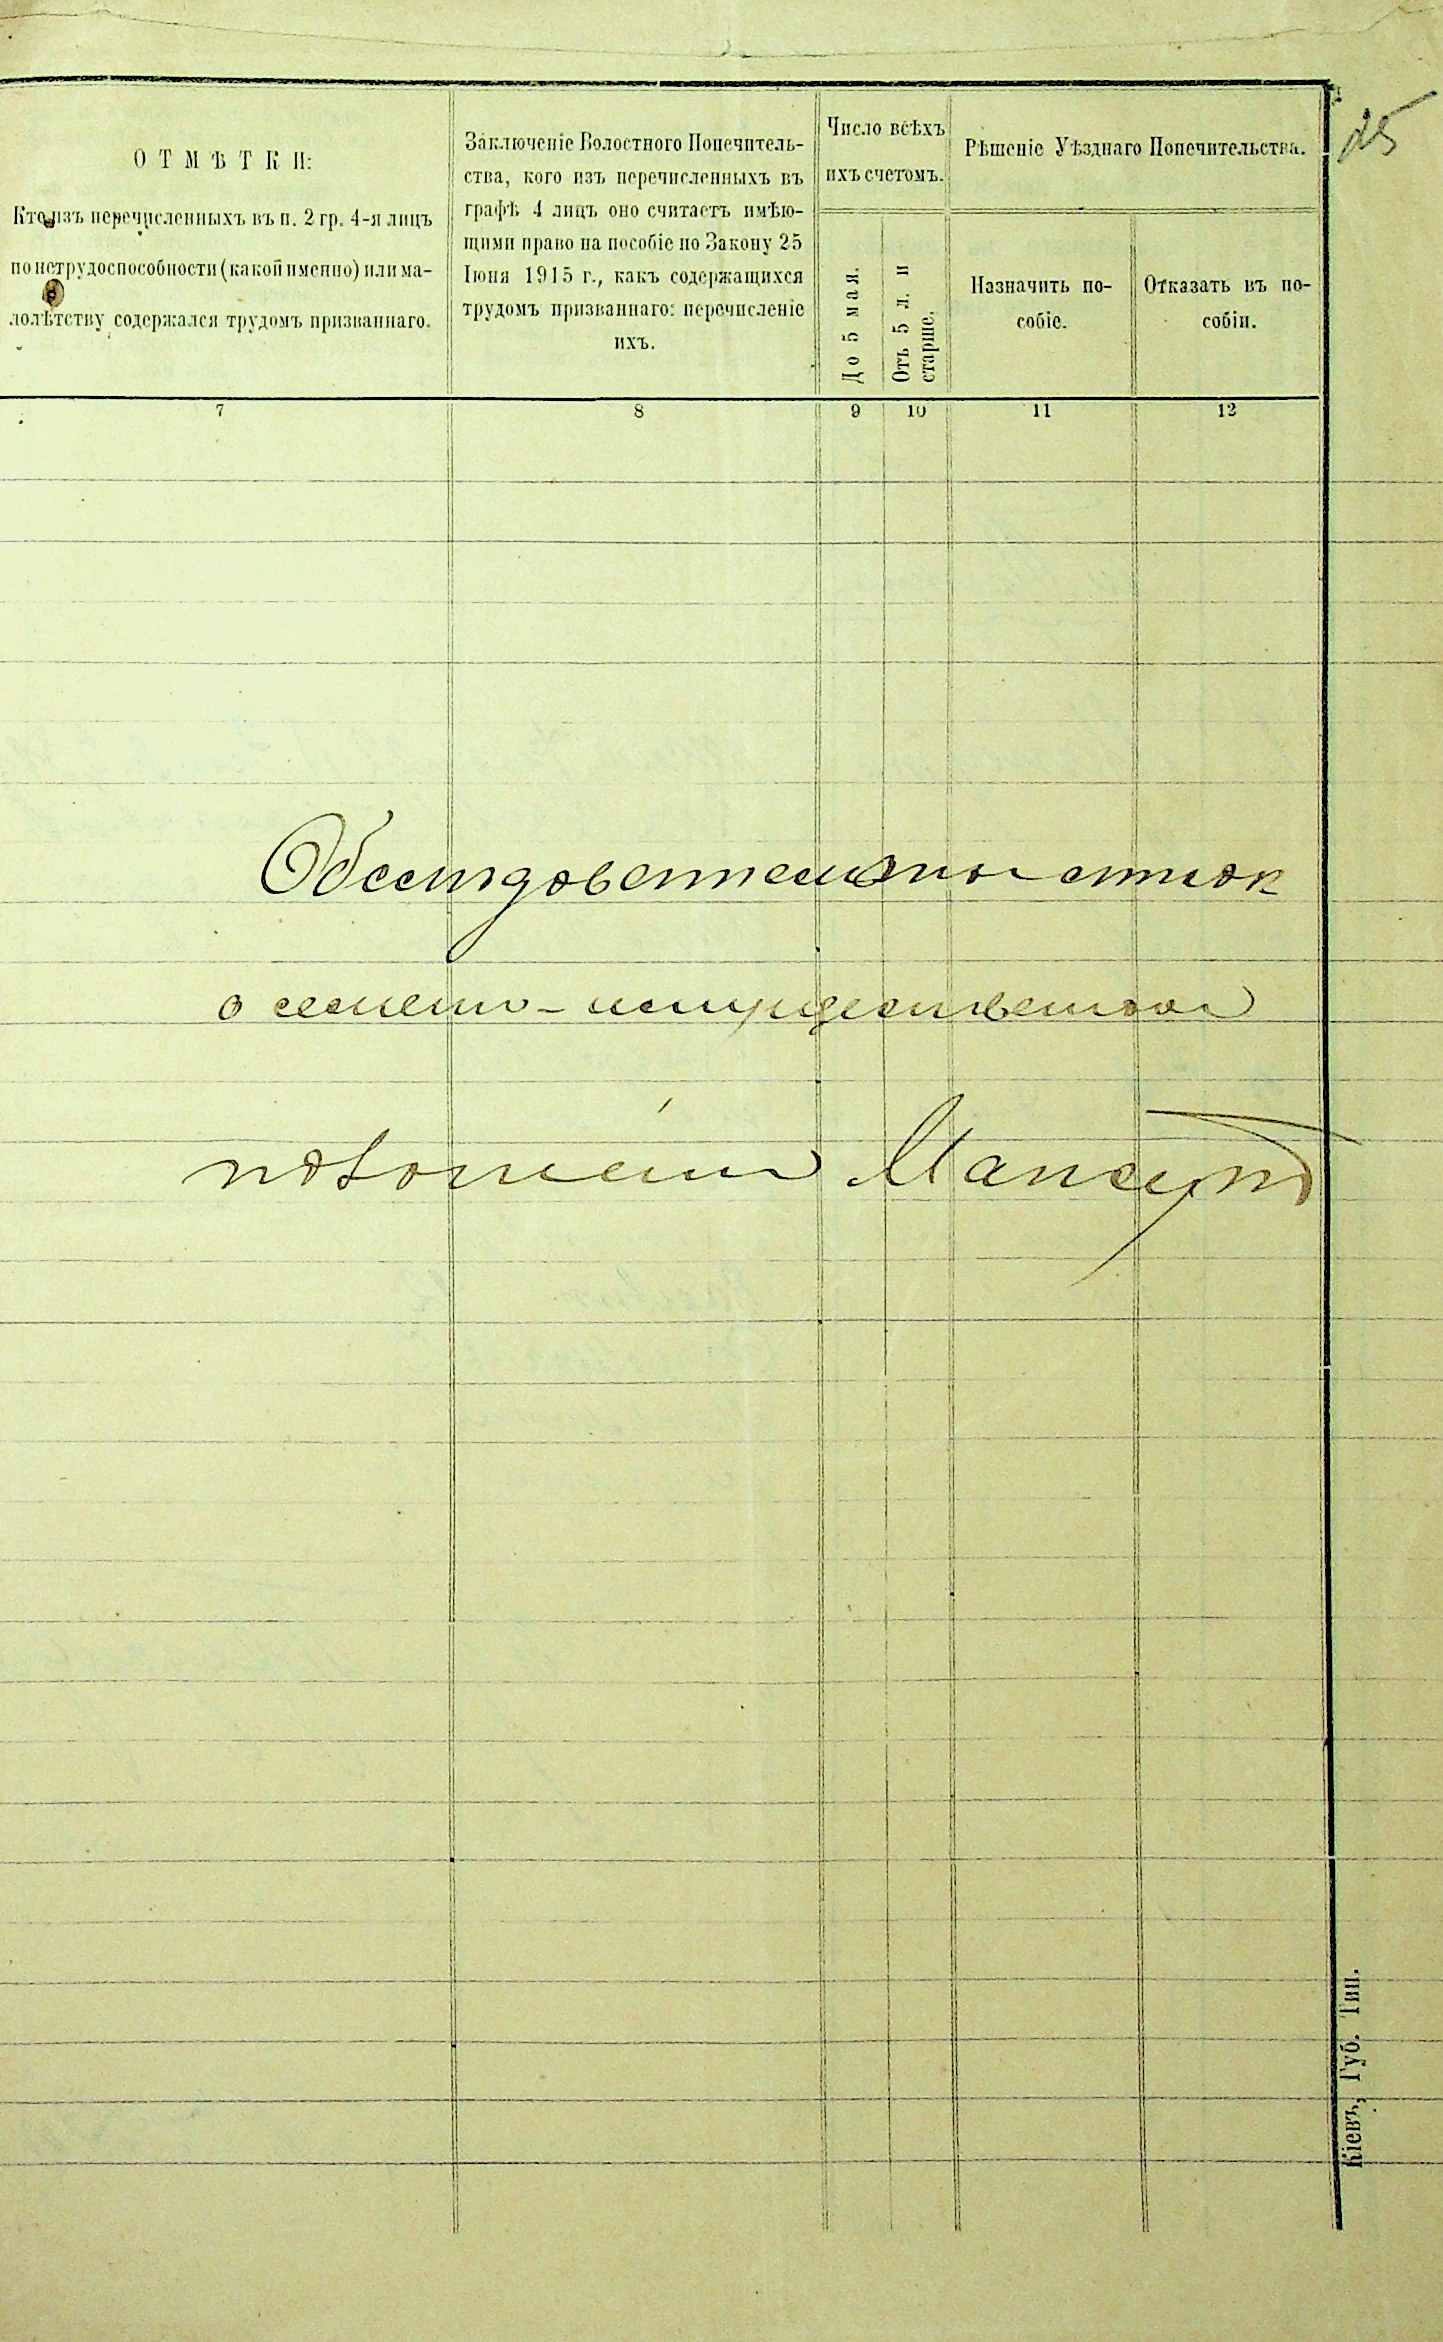 25
ОТМѢТКИ:
Кто изъ перечисленныхъ въ п. 2 гр. 4-я лицъ
по нетрудоспособности (какой именно) или ма-
лолѣтству содержался трудомъ призваннаго.
Заключеніе Волостного Попечитель-
ства, кого изъ перечисленныхъ въ
графѣ 4 лицъ оно считаетъ имѣю-
щими право на пособіе по Закону 25
Іюня 1915 г., какъ содержащихся
трудомъ призваннаго: перечисленіе
ихъ.
Число всѣхъ
ихъ счетомъ.
До 5 мая.
Отъ 5 л. и
старше.
Рѣшеніе Уѣзднаго Попечительства.
Назначить по-
собіе.
Отказать въ по-
собіи.
7 8 9 10 11 12
список
о семейно-имущественном
положении
Кіевъ, Губ. Тип.